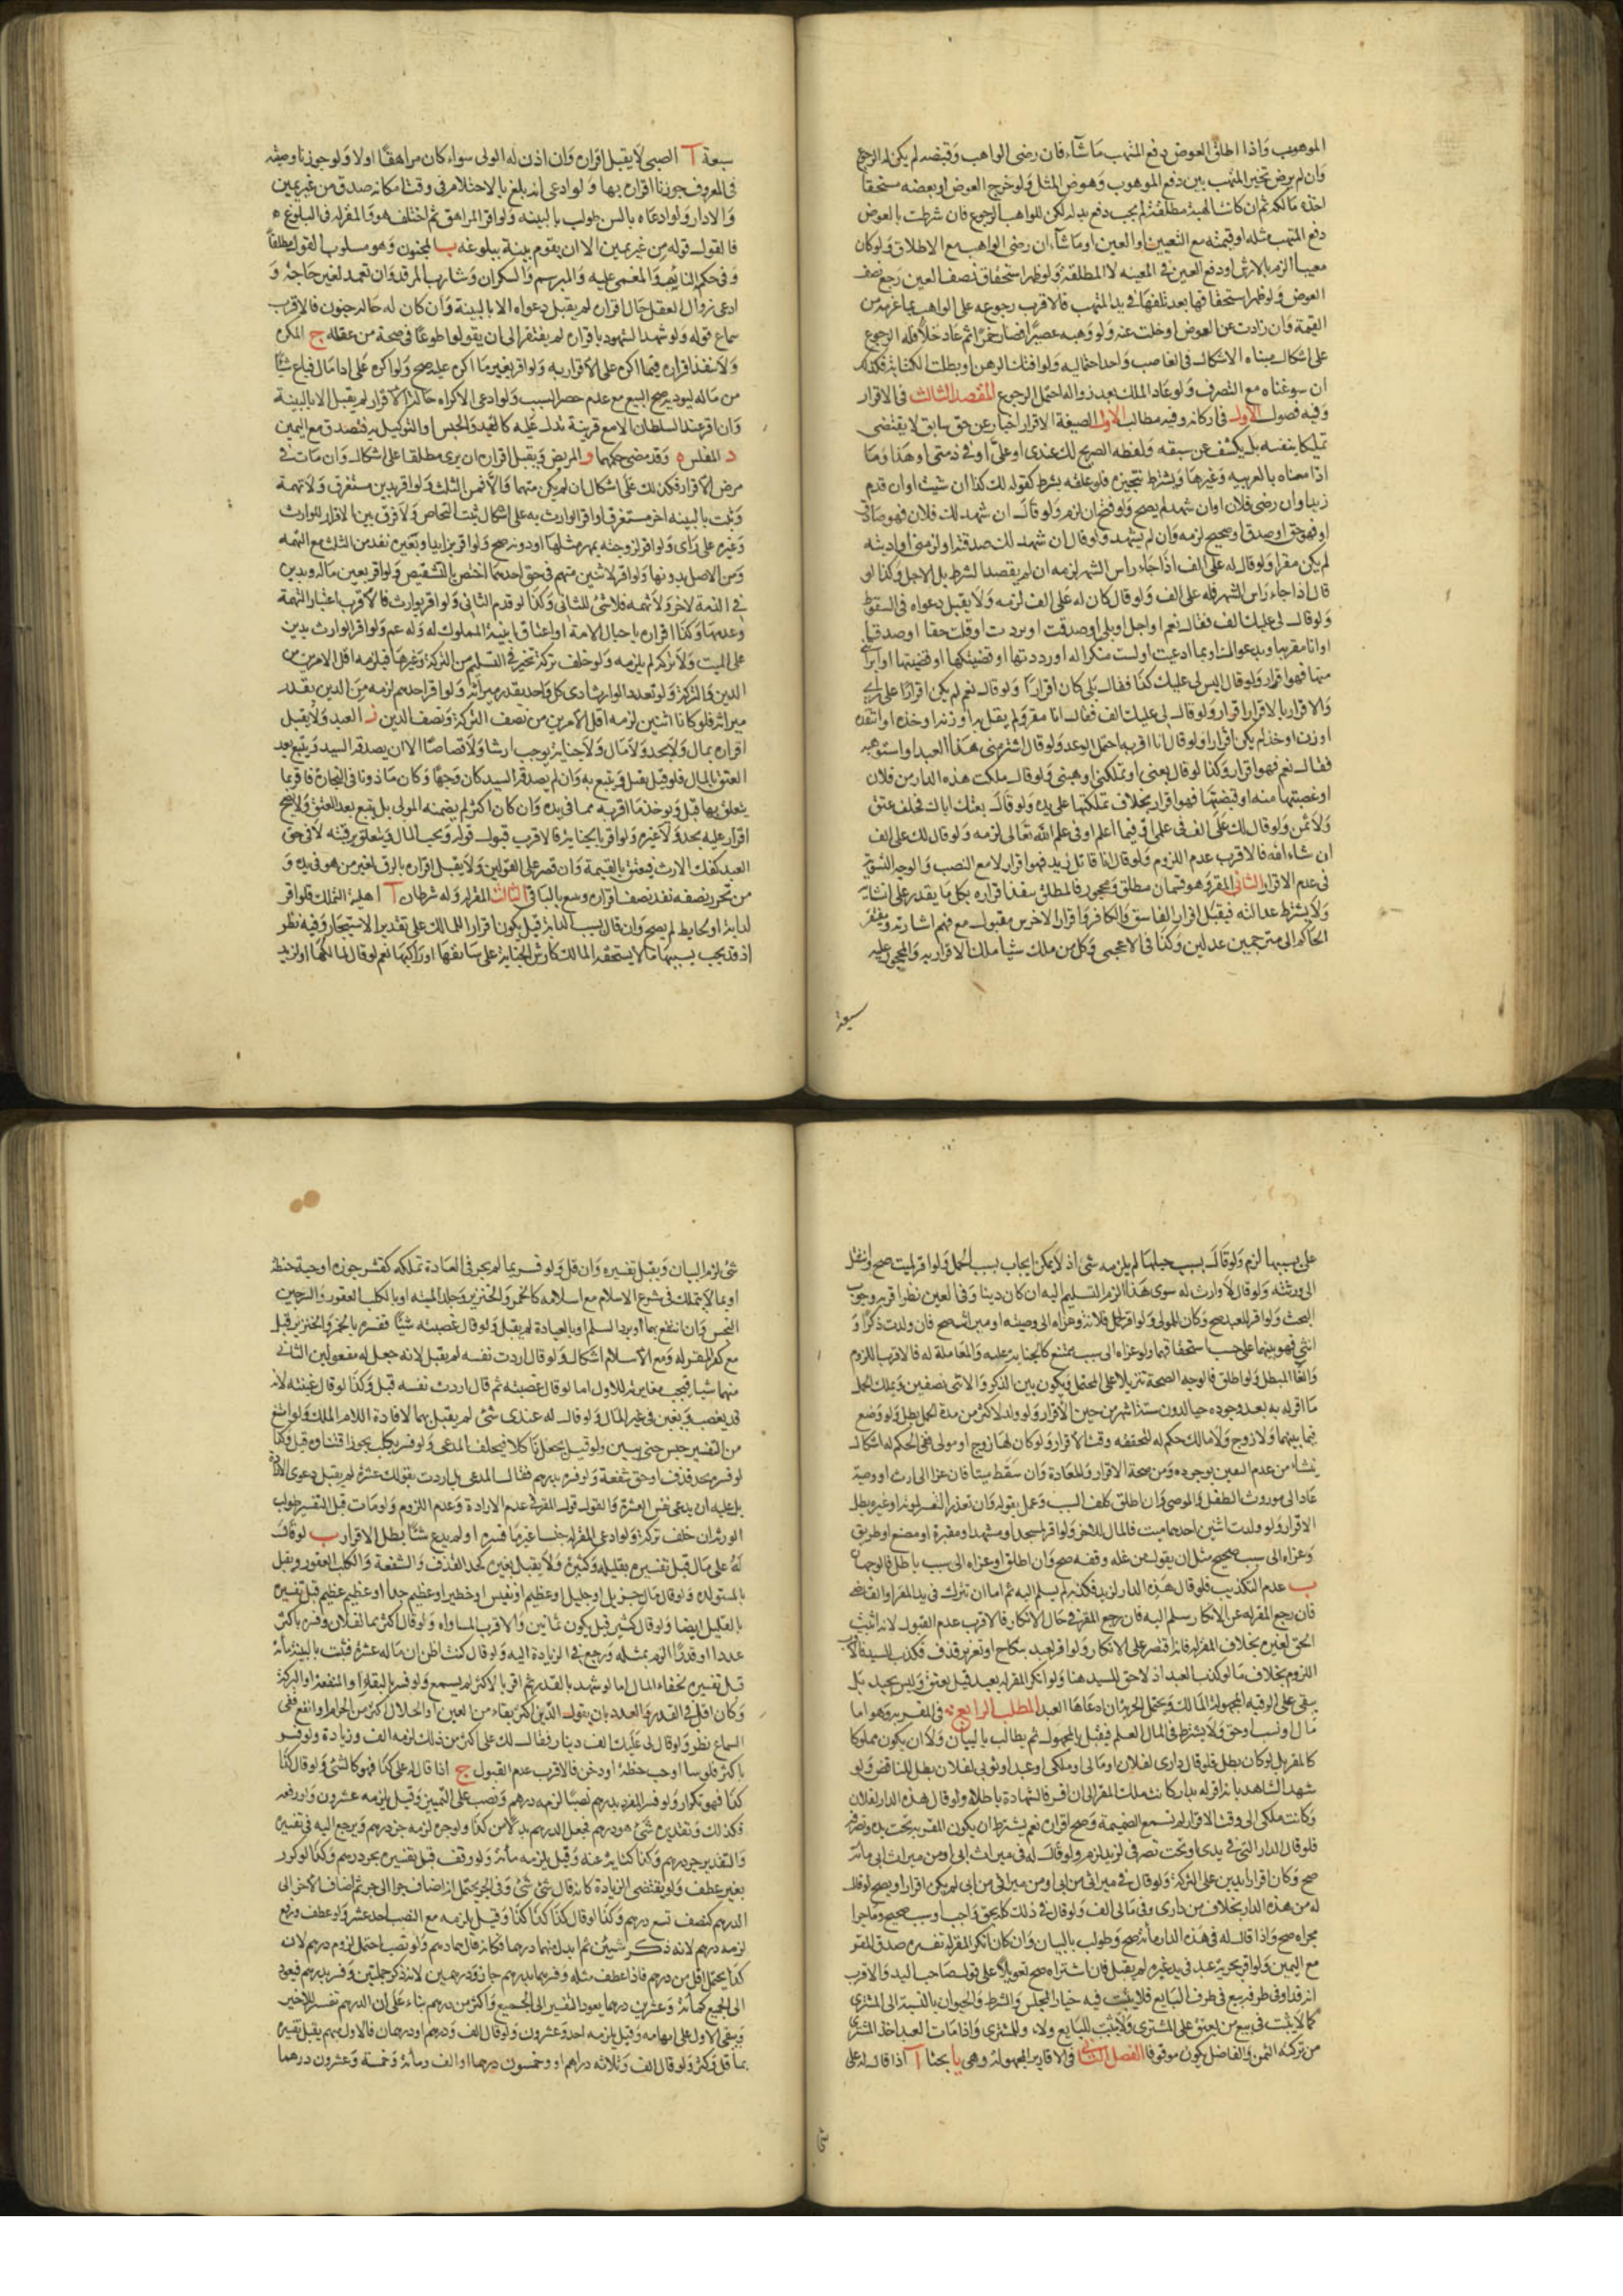 الموهوب واذا اطلق العوض دفع المتهب ما شاء فان رضى الواهب وقبضه لم يكن له الرجوع
وان لم يرض تخير المتهب بين دفع الموهوب وعوض المثل ولو خرج العوض او بعضه مستحقا
اخذه مالكه ثم ان كانت الهبة مطلقة لم يجب دفع بدله لكن للواهب الرجوع فان شرطت بالعوض
دفع المتهب مثله او قيمته مع التعيين او العين او ما شاء ان رضى الواهب مع الاطلاق ولو كان
معيبا الزم بالارش او دفع العين في المعينه لا المطلقة ولو ظهر استحقاق نصف العين رجع بنصف
العوض ولو ظهر استحقاقها بعد تلفها في يد المتهب فالاقرب رجوعه على الواهب بما غرمه من
القيمة وان زادت عن العوض او خلت عنه ولو وهبه عصيرا فصار خمرا ثم عاد خلا فله الرجوع
على اشكال مبناه الاشكال في الغاصب واحد احتماليه ولو افتك الرهن او بطلت الكتابة فكذلك
ان سوغناه مع التصرف ولو عاد الملك بعد زواله احتمل الرجوع المقصد الثالث في الاقرار
وفيه فصول الاول في اركانه وفيه مطالب الاول الصيغة الاقرار اخبار عن حق سابق لا يقتضى
تمليكا بنفسه بل يكشف عن سبقه ولفظه الصريح لك عندى او على او في ذمتى او هذا وما
ادا معناه بالعربيه وغيرها ويشترط تنجيزه فلو علقه بشرط كقوله لك كذا ان شئت او ان قدم
زيد او ان رضى فلان او ان شهد لم يصح ولو فتح ان لزم ولو قال ان شهد لك فلان فهو صادق
او فهو حق او صدق او صحيح لزمه وان لم يشهد ولو قال ان شهد لك صدقته او لزمنى او اديته
لم يكن مقرا ولو قال له على الف اذا جاء راس الشهر لزمه ان لم يقصد الشرط بل الاجل وكذا لو
قال اذا جاء راس الشهر فله على الف ولو قال كان له على الف لزمه ولا يقبل دعواه في السقوط
ولو قال لى عليك الف فقال نعم او اجل او بلى او صدقت او بررت او قلت حقا او صدقا
او انا مقر به او بدعواك او بما ادعيت او لست منكرا له او رددتها او قضيتكها او قضيتها او ابراتنى
منها فهو اقرار ولو قال اليس لى عليك كذا فقال بلى كان اقرارا ولو قال نعم لم يكن اقرارا على راى
والاقرار بالاقرار اقرار ولو قال لى عليك الف فقال انا مقر ولم يقل به او زنه او خذه او انتقده
او زن او خذ لم يكن اقرارا ولو قال انا اقر به احتمل الوعد ولو قال اشتر منى هذا العبد او استوهبه
فقال نعم فهو اقرار وكذا لو قال بعنى او ملكنى او هبنى ولو قال ملكت هذه الدار من فلان
او غصبتها منه او قبضتها فهو اقرار بخلاف تملكتها على يده ولو قال بعتك اباك فحلف عتق
ولا ثمن ولو قال لك على الف في علمى او فيما اعلم او في علم الله تعالى لزمه ولو قال لك على الف
ان شاء الله فالاقرب عدم اللزوم ولو قال انا قاتل زيد فهو اقرار لا مع النصب والوجه التسوية
في عدم الاقرار الثانى المقر وهو قسمان مطلق ومحجور فالمطلق ينفذ اقراره بكل ما يقدر على انشائه
ولا يشترط عدالته فيقبل اقرار الفاسق والكافر واقرار الاخرس مقبول مع فهم اشارته ويفتقر
الحاكم الى مترجمين عدلين وكذا في الاعجمى وكل من ملك شيا ملك الاقرار به والمحجور عليه
سبعة
سبعة آ الصبى لا يقبل اقراره وان اذن له الولى سواء كان مراهقا او لا ولو جوزنا وصيته
في المعروف جوزنا اقراره بها ولو ادعى انه بلغ بالاحتلام في وقت امكانه صدق من غير يمين
والا دار ولو ادعاه بالسن طولب بالبينه ولو اقر المراهق ثم اختلف هو والمقر له في البلوغ
فالقول قوله من غير يمين الا ان يقوم بينة ببلوغه ب المجنون وهو مسلوب القول مطلقا
وفي حكمه النايم والمغمى عليه والمبرسم والسكران وشارب المرقد وان تعمد لغير حاجة و
ادعى زوال العقل حال اقراره لم يقبل دعواه الا بالبينة وان كان له حاله جنون فالاقرب
سماع قوله ولو شهد الشهود باقراره لم يفتقر الى ان يقولوا طوعا في صحة من عقله ج المكره
ولا ينفذ اقراره فيما اكره على الاقرار به ولو اقر بغير ما اكره عليه صح ولو اكره على اداء مال فباع شيا
من ماله ليوديه صح البيع مع عدم حصر السبب ولو ادعى الاكراه حالة الاقرار لم يقبل الا بالبينة
وان اقر عند السلطان الا مع قرينة تدل عليه كالقيد والحبس او التوكيل به فيصدق مع اليمين
د المفلس ه وقد مضى حكمهما و المريض ويقبل اقراره ان برئ مطلقا على اشكال وان مات في
مرض الاقرار فكذلك على اشكال ان لم يكن متهما والا فمن الثلث ولو اقر بدين مستغرق ولا تهمة
وثبت بالبينه اخر مستغرق او اقر الوارث به على اشكال ثبت التحاص ولا فرق بين الاقرار للوارث
وغيره على راى ولو اقر لزوجته بمهر مثلها او دونه صح ولو اقر بزايد او بغيره نفذ من الثلث مع التهمه
ومن الاصل بدونها ولو اقر لاثنين متهم في حق احدهما اختص بالتشقيص ولو اقر بعين ماله وبدين
في الذمة لاخر ولا تهمه فلا شئ للثانى وكذا لو قدم الثانى ولو اقر بوارث فالاقرب اعتبار التهمة
وعدمها وكذا اقراره باحبال الامة او اعتاق ابنه المملوك له وله عم ولو اقر الوارث بدين
على الميت ولا تركه لم يلزمه ولو خلف تركة تخير في التسليم من التركة وغيرها فيلزمه اقل الامرين من
الدين والتركة ولو تعدد الوارث ادى كل واحد بقدر ميراثه ولو اقر احدهم لزمه من الدين بقدر
ميراثه فلو كانا اثنين لزمه اقل الامرين من نصف التركة ونصف الدين ز العبد ولا يقبل
اقراره بمال ولا بحد ولا مال ولا جناية يوجب ارشا ولا قصاصا الا ان يصدقه السيد ويتبع بعد
العتق بالمال فلو قيل يقبل ويتبع به وان لم يصدقه السيد كان وجها ولو كان ماذونا في التجارة فاقر بما
يتعلق بها قبل ويوخذ ما اقر به مما في يده وان كان اكثر لم يضمنه المولى بل يتبع بعد العتق ولا يصح
اقرار عليه بحد ولا غيره ولو اقر بالجناية فالاقرب قبول قوله ويجب المال ويتعلق برقبته لا في حق
العبد كفك الارث فيعتق بالقيمة وان قصر على القولين ولا يقبل اقراره بالرق لغير من هو في يده و
من تحرر نصفه نفذ نصف اقراره ويتبع بالباقى الثالث المقر له وله شرطان آ اهلية التملك فلو اقر
لدابة او لحايط لم يصح وان قال بسبب الدابة قيل يكون اقرارا للمالك على تقدير الاستيجار وفيه نظر
اذ قد يجب بسببها ما لا يستحقه المالك كارش الجناية على سائقها او راكبها نعم لو قال لمالكها او لزيد
على بسببها لزم ولو قال بسبب حملها لم يلزمه شئ اذ لا يمكن ايجاب بسبب الحمل ولو اقر لميت صح وانتقل
الى ورثته ولو قال لا وارث له سوى هذا الزم التسليم اليه ان كان دينا وفي العين نظر اقربه وجوب
البحث ولو اقر للعبد صح وكان للمولى ولو اقر لحمل فلانة وعزاه الى وصيته او ميراث صح فان ولدت ذكرا و
انثى فهو بينهما على حسب استحقاقهما ولو عزاه الى سبب ممتنع كالجناية عليه والمعاملة له فالاقرب اللزوم
والغاء المبطل ولو اطلق فالوجه الصحة تنزيلا على المحتمل ويكون بين الذكر والانثى نصفين ويملك الحمل
ما اقر له به بعد وجوده حيا لدون ستة اشهر من حين الاقرار ولو ولد لاكثر من مدة الحمل بطل ولو وضع
فيما بينهما ولا زوج ولا مالك حكم له لتحققه وقت الاقرار ولو كان لها زوج او مولى ففى الحكم له اشكال
ينشاء من عدم اليقين بوجوده ومن صحة الاقرار والعادة وان سقط ميتا فان عزا الى ارث او وصية
عاد الى موروث الطفل والموصى وان اطلق كلف السبب وعمل بقوله وان تعذر التفسير لموته او غيره بطل
الاقرار ولو ولدت اثنين احدهما ميت فالمال للاخر ولو اقر لمسجد او مشهد او مقبرة او مصنع او طريق
وعزاه الى سبب صحيح مثل ان يقول من غلة وقفه صح وان اطلق او عزاه الى سبب باطل فالوجهان
ب عدم التكذيب فلو قال هذه الدار لزيد فكذبه لم يسلم اليه ثم اما ان تترك في يد المقر او القاضى
فان رجع المقر له عن الانكار سلم اليه فان رجع المقر في حال الانكار فالاقرب عدم القبول لانه اثبت
الحق لغيره بخلاف المقر له فانه اقتصر على الانكار ولو اقر لعبد بنكاح او تعزير قذف فكذب السيد فالاقرب
اللزوم بخلاف ما لو كذب العبد اذ لا حق للسيد هنا ولو انكر المقر له بعبد قيل يعتق وليس بجيد بل
يبقى على الرقيه المجهولة المالك ويحتمل الحرية ان ادعاها العبد المطلب الرابع في المقر به وهو اما
مال او نسب او حق ولا يشترط في المال العلم فيقبل بالمجهول ثم يطالب بالبيان ولا ان يكون مملوكا
للمقر بل لو كان بطل فلو قال دارى لفلان او مالى او ملكى او عبدى او ثوبى لفلان بطل للتناقض ولو
شهد الشاهد بانه اقر له بدار كانت ملك المقر الى ان اقر فالشهادة باطلة ولو قال هذه الدار لفلان
وكانت ملكى الى وقت الاقرار لم تسمع الضميمة وصح اقراره نعم يشترط ان يكون المقر به تحت يده وتصرفه
فلو قال الدار التى في يدى او تحت تصرفى لزيد لزم ولو قال له في ميراث ابى او من ميراث ابى مائة
صح وكان اقرارا بدين على التركة ولو قال في ميراثى من ابى او من ميراثى من ابى لم يكن اقرارا ويصح لو قال
له من هذه الدار بخلاف من دارى وفى مالى الف ولو قال في ذلك كله بحق واجب او بسبب صحيح وما جرا
مجراه صح واذا قال له في هذه الدار مائة صح وطولب بالبيان وان كان انكر المقر له تفسيره صدق المقر
مع اليمين ولو اقر بحرية عبد في يد غيره لم يقبل فان اشتراه صح تعويلا على قول صاحب اليد والاقرب
انه فداء في طرفه بيع في طرف البايع فلا يثبت فيه خيار المجلس والشرط والحيوان بالنسبة الى المشترى
كما لا يثبت في بيع من يعتق على المشترى ولا يثبت للبايع ولاء ولا للمشترى واذا مات العبد اخذ المشترى
من تركته الثمن والفاضل يكون موقوفا الفصل الثانى في الاقارير المجهولة وهى يا بحثا آ اذا قال له على
شئ
شئ لزم البيان ويقبل تفسيره وان قل ولو فسر بما لم يجر في العادة تملكه كقشر جوزة او حبة حنطة
او بما لا يتملك في شرع الاسلام مع اسلامه كالخمر والخنزير وجلد الميته او بالكلب العقور والسرجين
النجس وان انتفع بهما او برد السلام او بالعيادة لم يقبل ولو قال غصبته شيئا ففسره بالخمر والخنزير قبل
مع كفر المقر له ومع الاسلام اشكال ولو قال اردت نفسه لم يقبل لانه جعل له مفعولين الثانى
منهما شيا فيجب مغايرته للاول اما لو قال غصبته ثم قال اردت نفسه قبل وكذا لو قال غبنته لانه
قد يغصب ويغبن في غير المال ولو قال له عندى شئ لم يقبل بهما لافادة اللام الملك ولو امتنع
من التفسير حبس حتى يبين ولو قيل يجعل ناكلا فيحلف المدعى ولو فسره بكلب يجوز اقتناؤه قبل وكذا
لو فسره بحد قذف او حق شفعة ولو فسره بدرهم فقال المدعى بل اردت بقولك عشرة لم يقبل دعوى الارادة
بل عليه ان يدعى نفس العشرة والقول قول المقر في عدم الارادة وعدم اللزوم ولو مات قبل التفسير طولب
الورثة ان خلف تركة ولو ادعى المقر له جنسا غير ما فسره او لم يدع شيئا بطل الاقرار ب لو قال
له على مال قبل تفسيره بقليله وكثيره ولا يقبل بغيره كحد القذف والشفعة والكلب العقور ويقبل
بالمستولدة ولو قال مال جزيل او جليل او عظيم او نفيس او خطير او عظيم جدا او عظيم عظيم قبل تفسيره
بالقليل ايضا ولو قال كثير قيل يكون ثمانين والاقرب المساواه ولو قال اكثر مما لفلان وفسره باكثر
عددا او قدرا الزم بمثله ورجع في الزيادة اليه ولو قال كنت اظن ان ماله عشرة فثبت بالبينة مائة
قبل تفسيره لخفاء المال اما لو شهد بالقدر ثم اقر بالاكثر لم يسمع ولو فسر بالبقاء او المنفعة او البركة
وكان اقل في القدر والعدد بان يقول الدين اكثر بقاء من العين او الحلال اكثر من الحرام او انفع ففى
السماع نظر ولو قال لى عليك الف دينار فقال لك على اكثر من ذلك لزمه الف وزيادة ولو فسر
باكثر فلوسا او حب حنطة او دخن فالاقرب عدم القبول ج اذا قال له على كذا فهو كالشئ ولو قال كذا
كذا فهو تكرار ولو فسر المفرد بدرهم نصبا لزمه درهم ونصب على التمييز وقيل يلزمه عشرون ولو رفعه
فكذلك وتقديره شئ هو درهم فجعل الدرهم بدلا من كذا ولو جره لزمه جزء درهم ويرجع اليه في تفسيره
والتقدير جزء درهم وكذا كناية عنه وقيل يلزمه مائة ولو وقف قبل تفسيره بجزء درهم وكذا لو كرر
بغير عطف ولا يقتضى الزيادة كانه قال شئ شئ وفى الجر يحتمل انه اضاف جزا الى جزء ثم اضاف الاخر الى
الدرهم كنصف تسع درهم وكذا لو قال كذا كذا كذا وقيل يلزمه مع النصب احد عشر ولو عطف ورفع
لزمه درهم لانه ذكر شيئين ثم ابدل منهما درهما فكانه قال هما درهم ولو نصب احتمل لزوم درهم لانه
كذا يحتمل اقل من درهم فاذا عطف مثله وفسرهما بدرهم جاز ودرهمين لانه ذكر جملتين وفسر بدرهم فيعود
الى الجميع كمائة وعشرين درهما يعود التفسير الى الجميع واكثر من درهم بناء على ان الدرهم تفسير للاخير
ويبقى الاول على ابهامه وقيل يلزمه احد وعشرون ولو قال الف ودرهم او درهمان فالاول مبهم يقبل تفسيره
بما قل وكثر ولو قال الف وثلاثه دراهم او وخمسون درهما او الف ومائة وخمسة وعشرون درهما